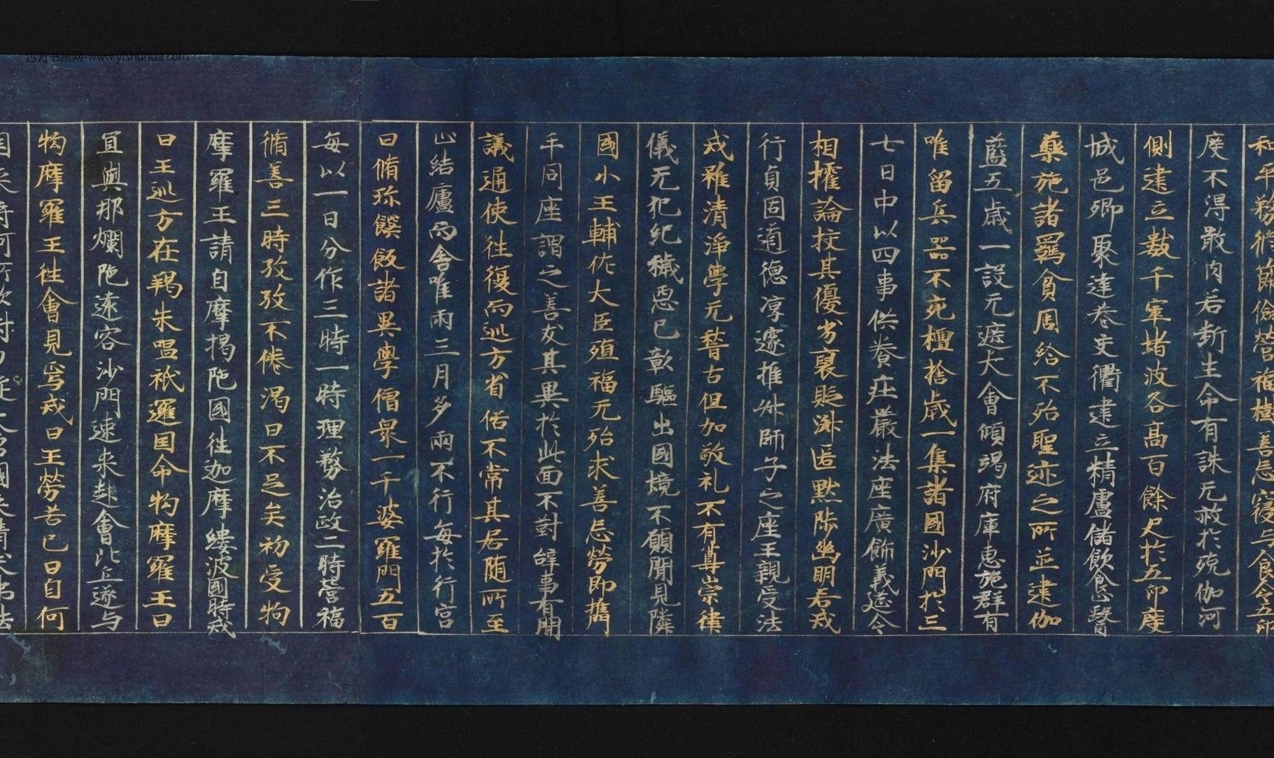 和平務脩節儉營福樹善忘寝与食令五印
度不得敢肉若断生命有誅无赦於殑伽河
側建立數千窣堵波各高百餘尺於五印度
城邑鄉聚達巷交衢建立精廬儲飲食醫
藥施諸羈貧周給不殆聖迹之所並建伽
藍五歲一設无遮大會傾竭府庫惠施群有
唯留兵器不充檀捨歲一集諸國沙門於三
七日中以四事供養莊嚴法座廣飾義莚令
相摧論挍其優劣褒貶淋慝黙陟幽明若戒
行貞固道德淳邃推昇師子之座王親受法
戒雖清淨學无稽古但加敬礼不有尊崇律
儀无犯紀穢惡已彰驅出國境不願聞見隣
國小王輔佐大臣殖福无殆求善忘勞即攜
手同座謂之善友其異於此面不對辭事有聞
議通使往復而巡方省俗不常其居随所至
止結廬而舎唯雨三月多雨不行每於行宮
日脩珎饌飯諸異學僧眾一千婆羅門五百
每以一日分作三時一時理務治政二時營福
脩善三時孜孜不倦渇日不足矣初受拘
摩羅王請自摩揭陀國往迦摩縷波國時戒
日王巡方在羯朱嗢祇邏国命拘摩羅王曰
宜與那爛陀遠客沙門速来赴會於是遂与
拘摩羅王往會見焉戒日王勞苦已曰自何
国来將何所欲對曰從大唐國来請求佛法